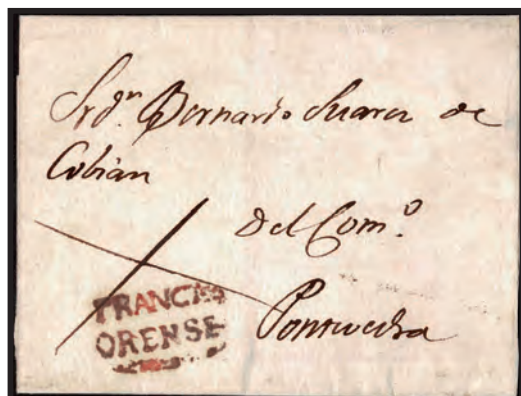 Sr dn. Bernardo Suarez de
Cobian
del Como.
Pontevedra
FRANCA
ORENSE